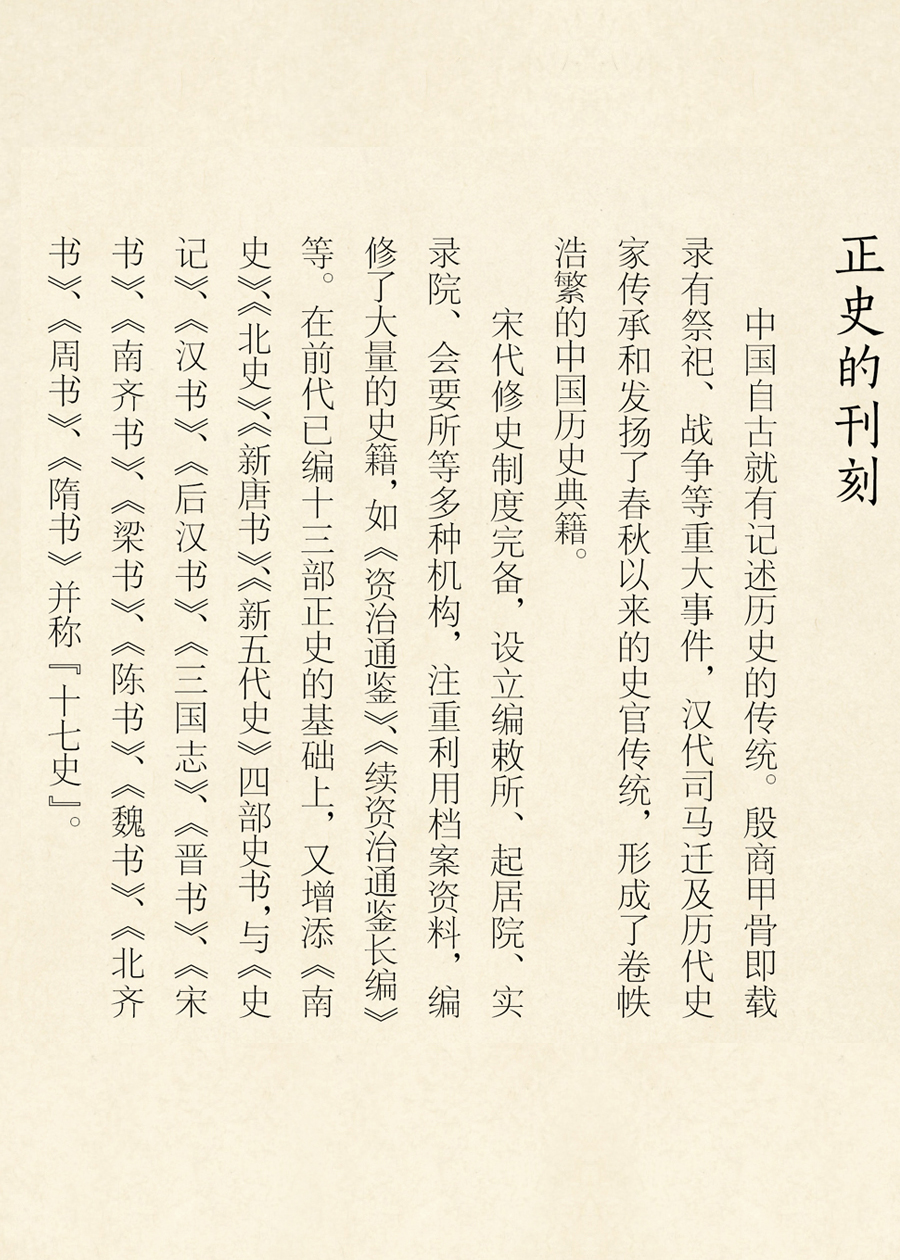 正史的刊刻
中国自古就有记述历史的传统。殷商甲骨即载
录有祭祀、战争等重大事件，汉代司马迁及历代史
家传承和发扬了春秋以来的史官传统，形成了卷帙
浩繁的中国历史典籍。
宋代修史制度完备，设立编敕所、起居院、实
录院、会要所等多种机构，注重利用档案资料，编
修了大量的史籍，如《资治通鉴》、《续资治通鉴长编》
等。在前代已编十三部正史的基础上，又增添《南
史》、《北史》、《新唐书》、《新五代史》四部史书，与《史
记》、《汉书》、《后汉书》、《三国志》、《晋书》、《宋
书》、《南齐书》、《梁书》、《陈书》、《魏书》、《北齐
书》、《周书》、《隋书》并称『十七史』。